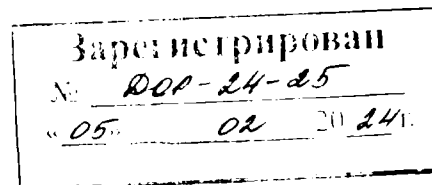 Зарегистрирован
№ ДОР-24-25
«05» 02 2024г.